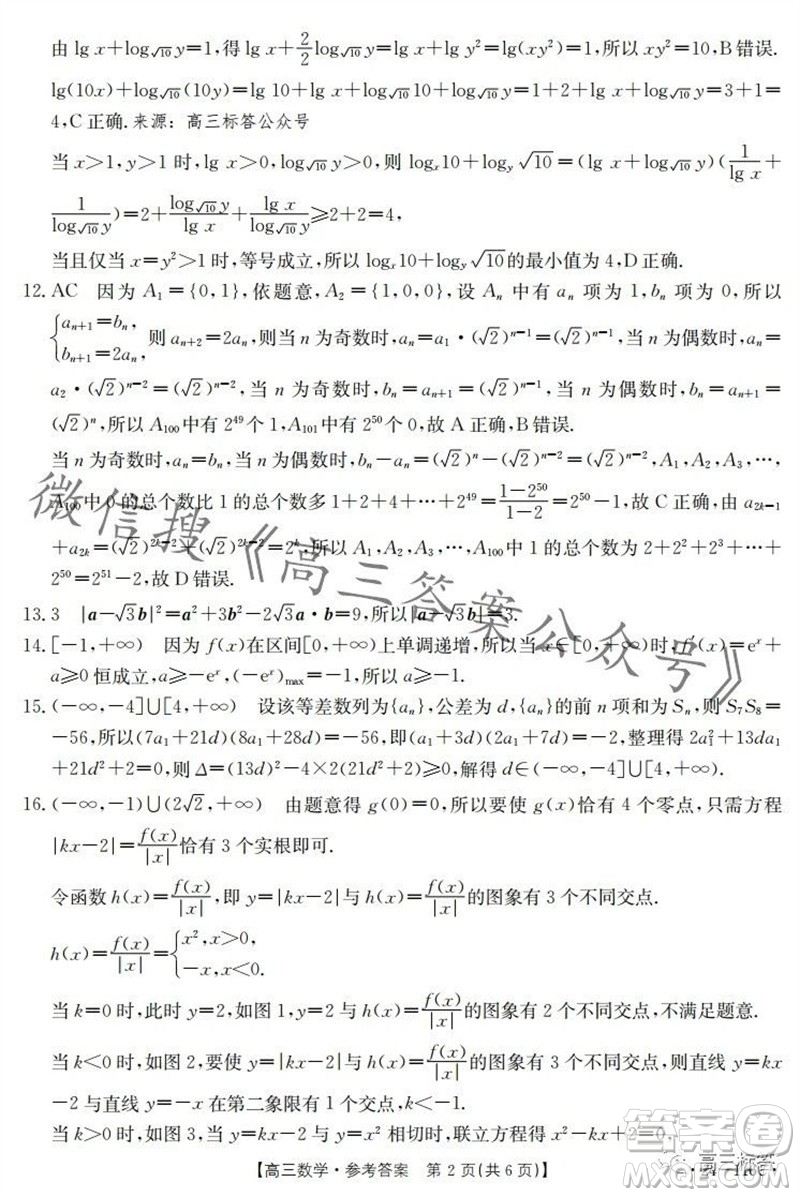 由 lg x+log_{√10} y=1，得 lg x+\frac{2}{2}log_{√10} y=lg x+lg y²=lg(xy²)=1，所以 xy²=10，B 错误.
lg(10x)+log_{√10}(10y)=lg 10+lg x+log_{√10}10+log_{√10}y=1+2+lg x+log_{√10}y=3+1=
4，C 正确. 来源：高三标答公众号
当 x>1，y>1 时，lg x>0，log_{√10}y>0，则 log_x10+log_y√10=(lg x+log_{√10}y)(\frac{1}{lg x}+
\frac{1}{log_{√10}y})=2+\frac{log_{√10}y}{lg x}+\frac{lg x}{log_{√10}y}≥2+2=4，
当且仅当 x=y²>1 时，等号成立，所以 log_x10+log_y√10的最小值为 4，D 正确.
12. AC 因为 A₁={0,1}，依题意，A₂={1,0,0}，设 A_n 中有 a_n 项为 1，b_n 项为 0，
{a_{n+1}=b_n, b_{n+1}=2a_n, 则 a_{n+2}=2a_n，则当 n 为奇数时，a_n=a₁·(√2)^{n-1}=(√2)^{n-1}，当 n 为偶数时，a_n=
a₂·(√2)^{n-2}=(√2)^{n-2}，当 n 为奇数时，b_n=a_{n+1}=(√2)^{n-1}，当 n 为偶数时，b_n=a_{n+1}=
(√2)^n，所以 A₁₀₀中有 2⁴⁹个 1，A₁₀₁中有 2⁵⁰个 0，故 A 正确，B 错误.
当 n 为奇数时，a_n=b_n，当 n 为偶数时，b_n-a_n=(√2)^n-(√2)^{n-2}=(√2)^{n-2}，A₁，A₂，A₃，…，
A₁₀₀中 0 的总个数比 1 的总个数多 1+2+4+…+2⁴⁹=\frac{1-2⁵⁰}{1-2}=2⁵⁰-1，故 C 正确. 因为 a_{2k-1}
+a_{2k}=(√2)^{2k-2}+(√2)^{2k-2}=2^k，所以 A₁，A₂，A₃，…，A₁₀₀中 1 的总个数为 2+2²+2³+…+
2⁵⁰=2⁵¹-2，故 D 错误.
13. 3 |a-√3b|²=a²+3b²-2√3a·b=9，所以|a-√3b|=3.
14. [-1,+∞) 因为 f(x)在区间[0,+∞)上单调递增，所以当 x∈[0,+∞)时，f′(x)=e^x+
a≥0 恒成立，a≥-e^x，(-e^x)_{max}=-1，所以 a≥-1.
15. (-∞,-4]∪[4,+∞) 设该等差数列为{a_n}，公差为 d，{a_n}的前 n 项和为 S_n，则 S₇S₈=
-56，所以(7a₁+21d)(8a₁+28d)=-56，即(a₁+3d)(2a₁+7d)=-2，整理得 2a₁²+13da₁
+21d²+2=0，则 Δ=(13d)²-4×2(21d²+2)≥0，解得 d∈(-∞,-4]∪[4,+∞).
16. (-∞,-1)∪(2√2,+∞) 由题意得 g(0)=0，要使得 g(x)恰有 4 个零点，只需方程
|kx-2|=\frac{f(x)}{|x|}恰有 3 个实根即可.
令函数 h(x)=\frac{f(x)}{|x|}，即 y=|kx-2|与 h(x)=\frac{f(x)}{|x|}的图象有 3 个不同交点.
h(x)=\frac{f(x)}{|x|}={x²,x>0, -x,x<0.
当 k=0 时，此时 y=2，如图 1，y=2 与 h(x)=\frac{f(x)}{|x|}的图象有 2 个不同交点，不满足题意.
当 k<0 时，如图 2，要使 y=|kx-2|与 h(x)=\frac{f(x)}{|x|}的图象有 3 个不同交点，则直线 y=kx
-2 与直线 y=-x 在第二象限有 1 个交点，k<-1.
当 k>0 时，如图 3，当 y=kx-2 与 y=x² 相切时，联立方程得 x²-kx+2=0，
【高三数学·参考答案 第 2 页(共 6 页)】
微信搜《高三答案公众号》
答案圈
高三标答